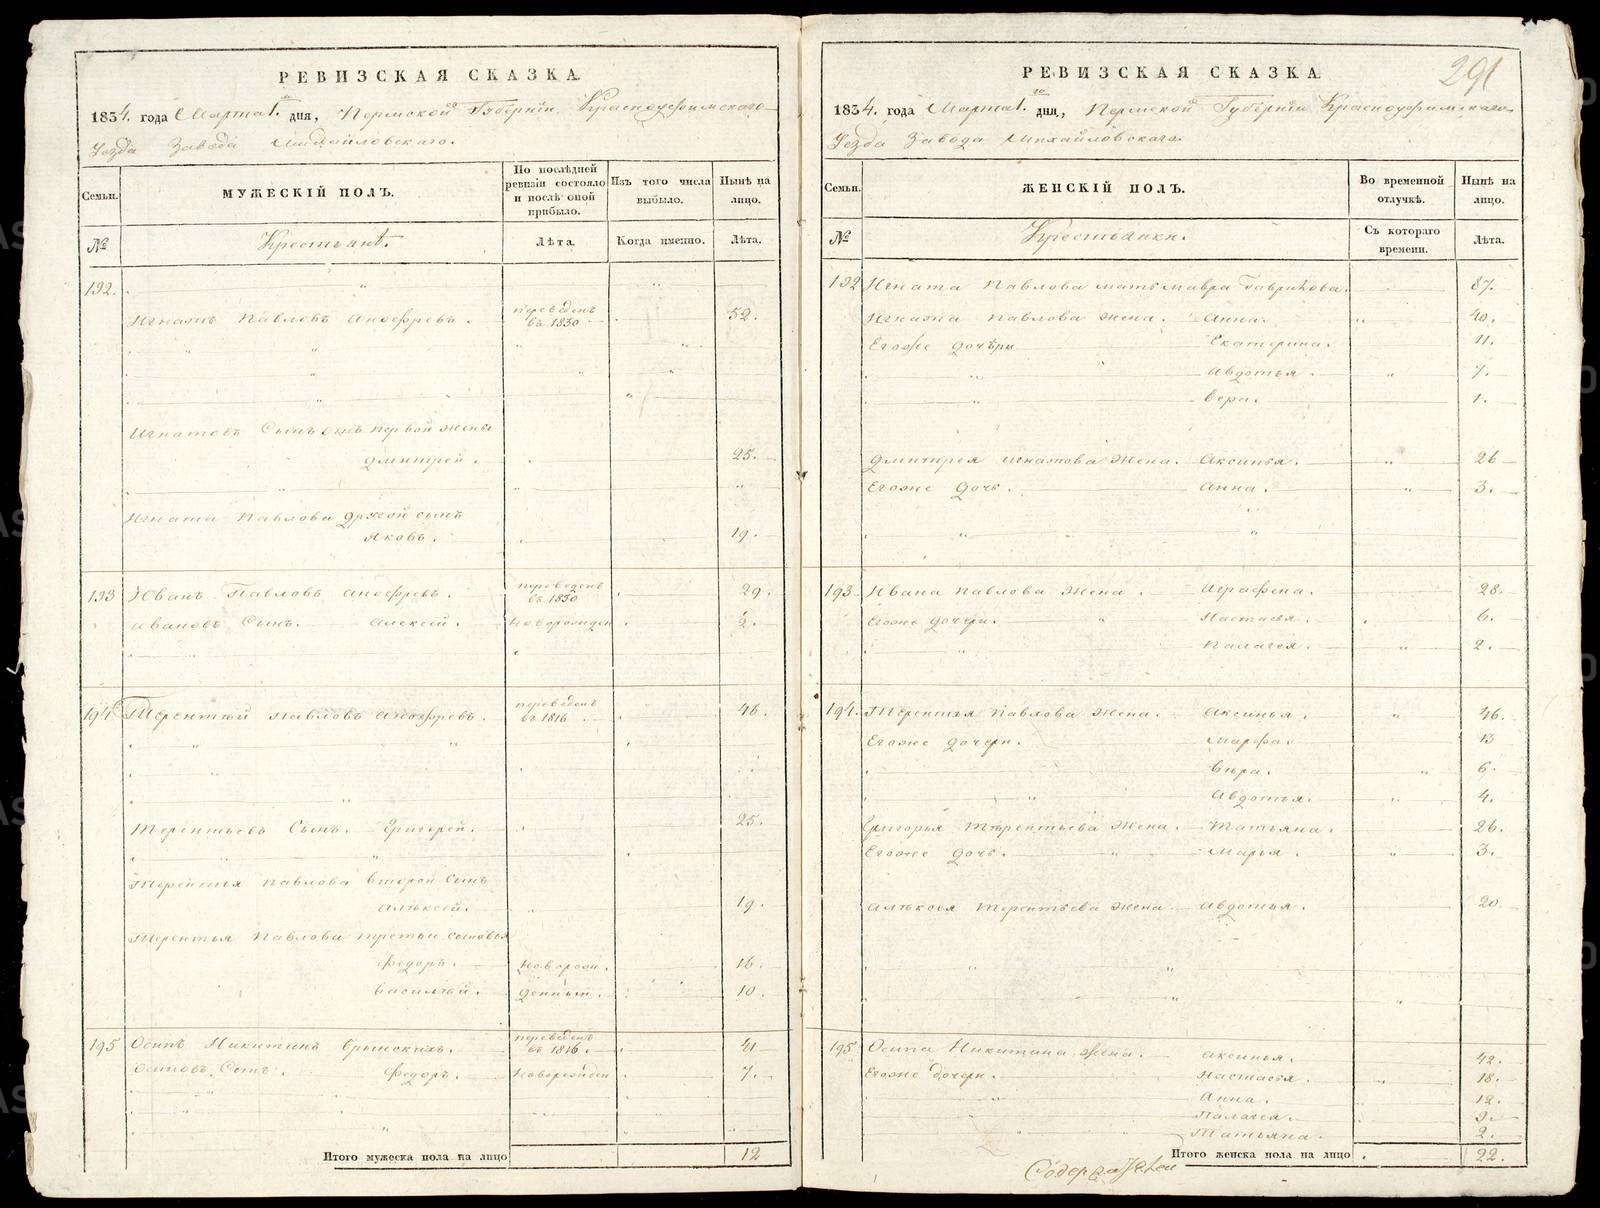 РЕВИЗСКАЯ СКАЗКА.
1834. года Марта 1. дня, Пермской Губернiи Красноуфимскаго
Уезда Завода Михайловскаго.
Семьи.
МУЖЕСКIЙ ПОЛЪ.
По послѣдней ревизiи состояло и послѣ оной прибыло.
Изъ того числа выбыло.
Нынѣ на лицо.
№
Крестьянѣ.
Лѣта.
Когда именно.
Лѣта.
192.
Игнатъ Павловъ Анофревъ. переведенъ въ 1830 52.
Игнатовъ Сынъ первой жены
Дмитрей. 25.
Игната Павлова другой сынъ
Яковъ. 19.
193 Иванъ Павловъ Анофревъ. переведенъ въ 1830 29.
Ивановъ Сынъ. Алексей. Новорожден 2.
194 Терентiй Павловъ Анофревъ. переведенъ въ 1816 46.
Терентьевъ Сынъ. Григорей. 25.
Терентья Павлова второй Сынъ
Алѣксей. 19.
Терентья Павлова третьи сыновья
Федоръ. Новорож. 16.
Василiй. денный. 10.
195 Осипъ Никитинъ Брынскихъ. переведенъ въ 1816. 41
Осиповъ Сынъ. Федоръ. Новорожден 7.
Итого мужеска пола на лицо 12
РЕВИЗСКАЯ СКАЗКА.
291
1834. года Марта 1. дня, Пермской Губернiи Красноуфимскаго
Уезда Завода Михайловскаго.
Семьи.
ЖЕНСКIЙ ПОЛЪ.
Во временной отлучкѣ.
Нынѣ на лицо.
№
Крестьянки.
Съ котораго времени.
Лѣта.
192 Игната Павлова мать Мавра Гаврилова. 87.
Игната Павлова жена. Анна. 40.
Егоже дочѣри Екатерина. 11.
Авдотья. 7.
Вера. 1.
Дмитрея Игнатова жена. Аксинья. 26
Егоже дочь. Анна. 3.
193 Ивана Павлова жена. Аграфена. 28.
Егоже дочери. Настасья. 6.
Палагея. 2.
194. Терентья Павлова жена. Аксинья. 46.
Егоже дочери. Марфа. 13
Вѣра. 6.
Авдотья. 4.
Григорья Терентьева жена. Татьяна. 26.
Егоже дочь. Марья. 3.
Алѣксея Терентьева жена. Авдотья. 20.
195 Осипа Никитина жена. Аксинья. 42.
Егоже дочери. Настасья. 18.
Анна. 12.
Палагея. 9.
Татьяна. 2.
Итого женска пола на лицо 22.